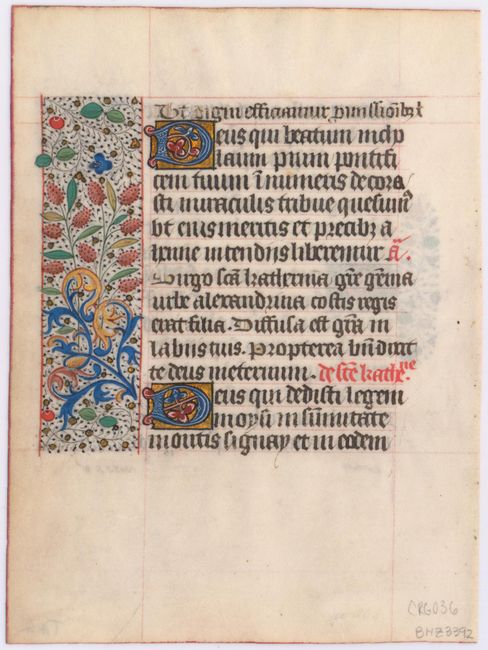 Ut digni efficiamur p̄missioībꝫ x̄
Deus qui beatum nicho
laum pium pontifi
cem tuum īnumeris decora
sti miraculis tribue quesumꝰ
vt eius meritis et precibꝫ a
iehenne incendijs liberemur añ.
Virgo scā katherina grē gēma
vrbe alexandrina costis regis
erat filia. Diffusa est grā in
labiis tuis. Propterea bn̄dixit
te deus ineternum. de scē kathe.ne
Deus qui dedisti legem
moysi in sūmitate
montis signay et in eodem
CRG036
BHZ3392